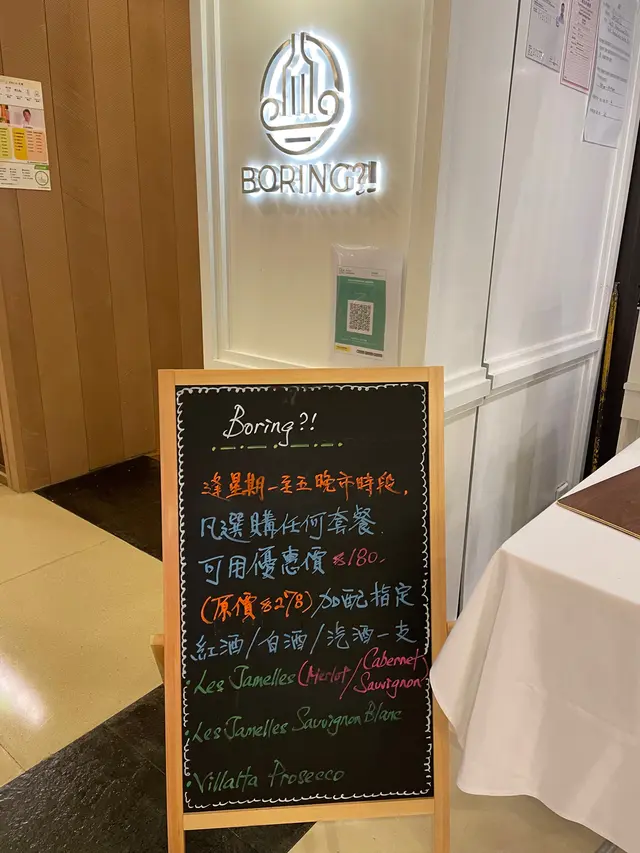 BORING?!
Boring?!
逢星期一至五晚市時段,
凡選購任何套餐.
可用優惠價 $180.
(原價 $278) 加配指定
紅酒/白酒/汽酒一支
· Les Jamelles (Merlot/Cabernet Sauvignon)
· Les Jamelles Sauvignon Blanc
· Villalta Prosecco